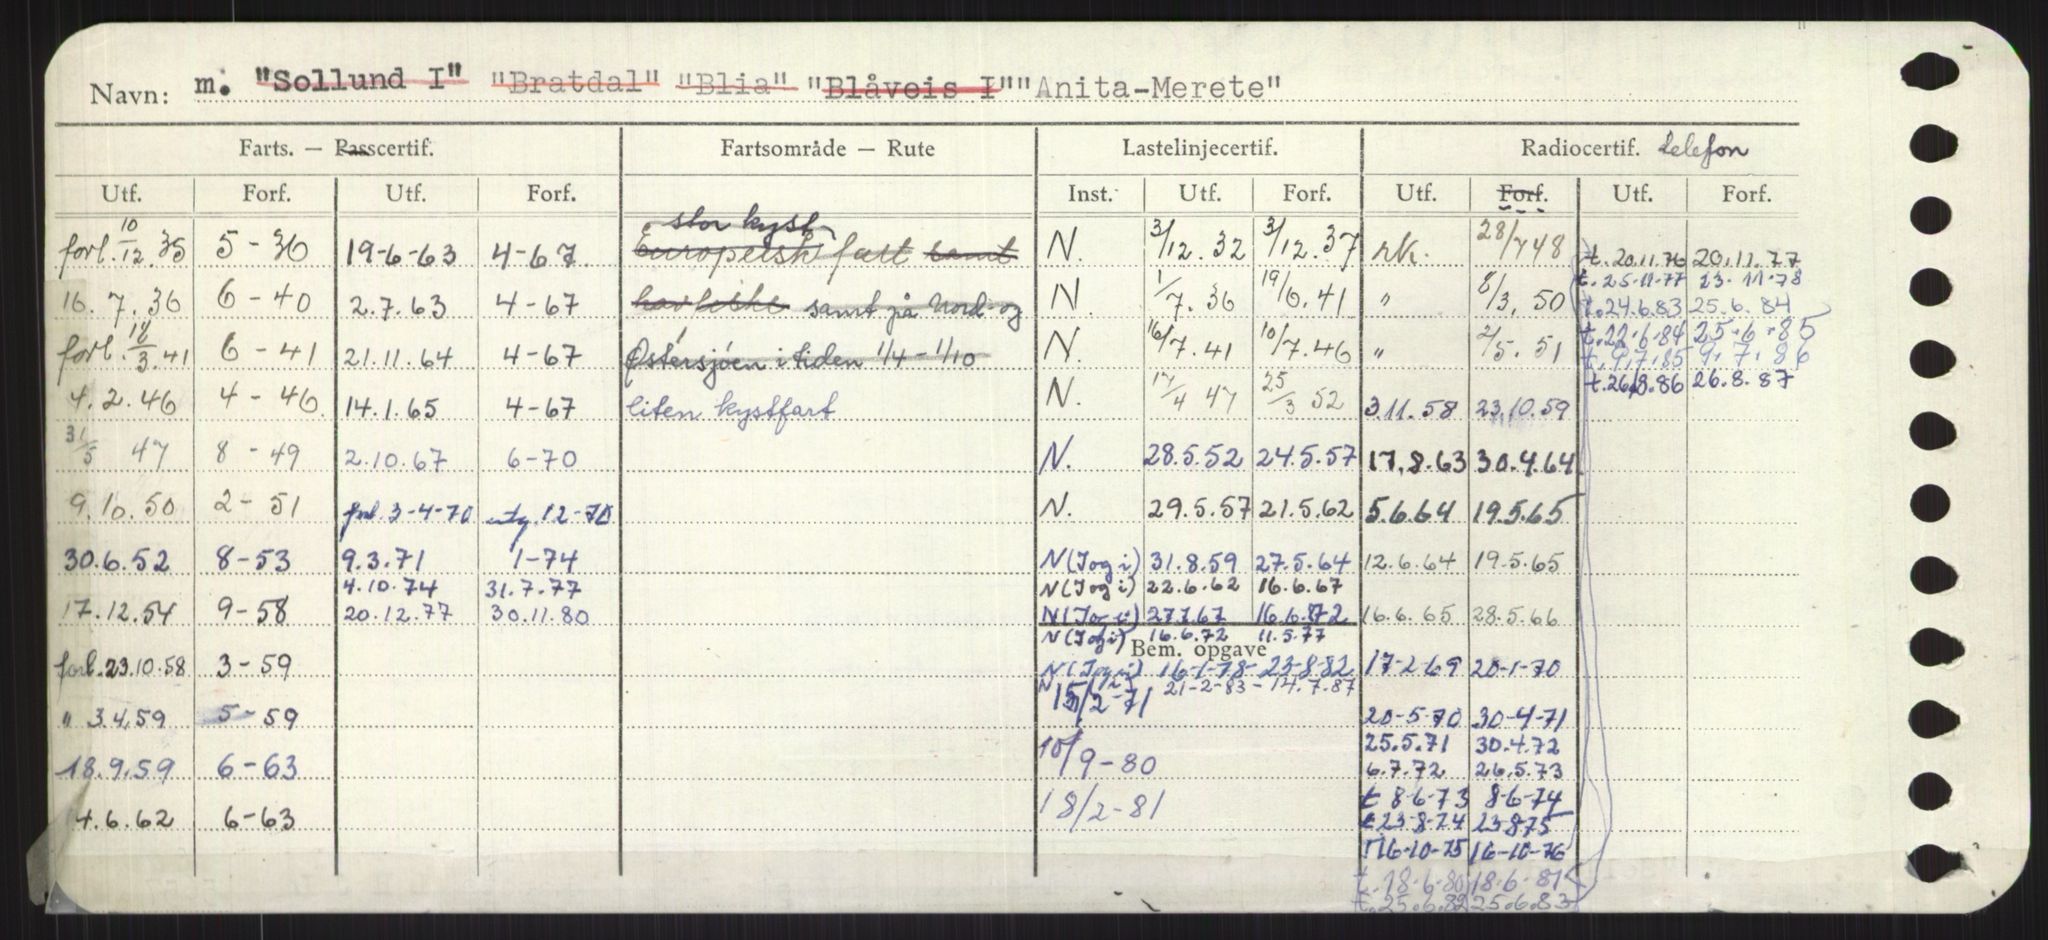 Navn: m. "Sollund I" "Bratdal" "Blia" "Blåveis I" "Anita-Merete"
Farts. — Passcertif. Fartsområde — Rute Lastelinjecertif. Radiocertif. telefon
Utf. Forf. Utf. Forf. Inst. Utf. Forf. Utf. Forf. Utf. Forf.
stor kyst
forl. 10/12.35 5-36 19-6-63 4-67 Europeisk fart samt N. 3/12.32 3/12.37 rk. 28/7 48 t. 20.11.76 20.11.77
t. 25-11-77 23.11.78
16.7.36 6-40 2.7.63 4-67 havfiske samt på Nord- og N 1/7.36 19/6.41 " 8/3.50 t. 24.6.83 25.6.84
t. 22.6.84 25.6.85
forl. 18/3.41 6-41 21.11.64 4-67 Østersjøen i tiden 1/4-1/10 N. 16/7.41 10/7.46 " 2/5.51 t. 9.7.85 9.7.86
4.2.46 4-46 14.1.65 4-67 liten kystfart N. 17/4 47 25/3 52 3.11.58 23.10.59 t. 26.8.86 26.8.87
31/5 47 8-49 2.10.67 6-70 N. 28.5.52 24.5.57 17.8.63 30.4.64
9.10.50 2-51 forl. 3-4-70 12-70 N. 29.5.57 21.5.62 5.6.64 19.5.65
30.6.52 8-53 9.3.71 1-74 N (I og i) 31.8.59 27.5.64 12.6.64 19.5.65
4.10.74 31.7.77 N (I og i) 22.6.62 16.6.67
17.12.54 9-58 20.12.77 30.11.80 N (I og i) 27.7.67 16.6.72 16.6.65 28.5.66
N (I og i) 16.6.72 11.5.77
Bem. opgave
forl. 23.10.58 3-59 N (I og i) 16-1-78- 23-8-82 17-2-69 20-1-70
N 21-2-83-14.7.87
" 3.4.59 5-59 15/2-71 20-5-70 30-4-71
25.5.71 30.4.72
18.9.59 6-63 10/9-80 6.7.72 26.5.73
t 8-6-73 8-6-74
14.6.62 6-63 18/2-81 t 23-8-74 23-8-75
16-10-75 16-10-76
t. 18-6-80 18-6-81
t. 25.6.82 25.6.83